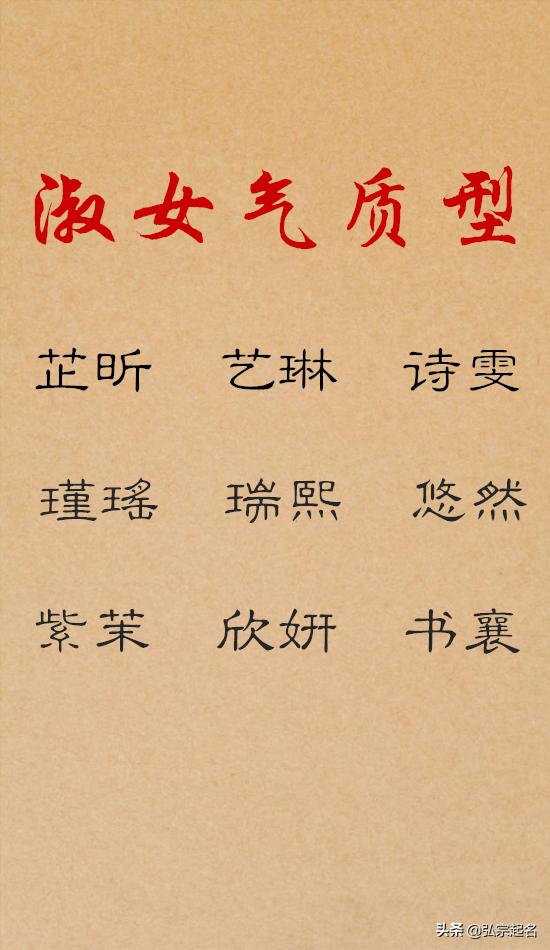 淑女气质型
芷昕 艺琳 诗雯
瑾瑶 瑞熙 悠然
紫茉 欣妍 书襄
头条 @弘宗起名